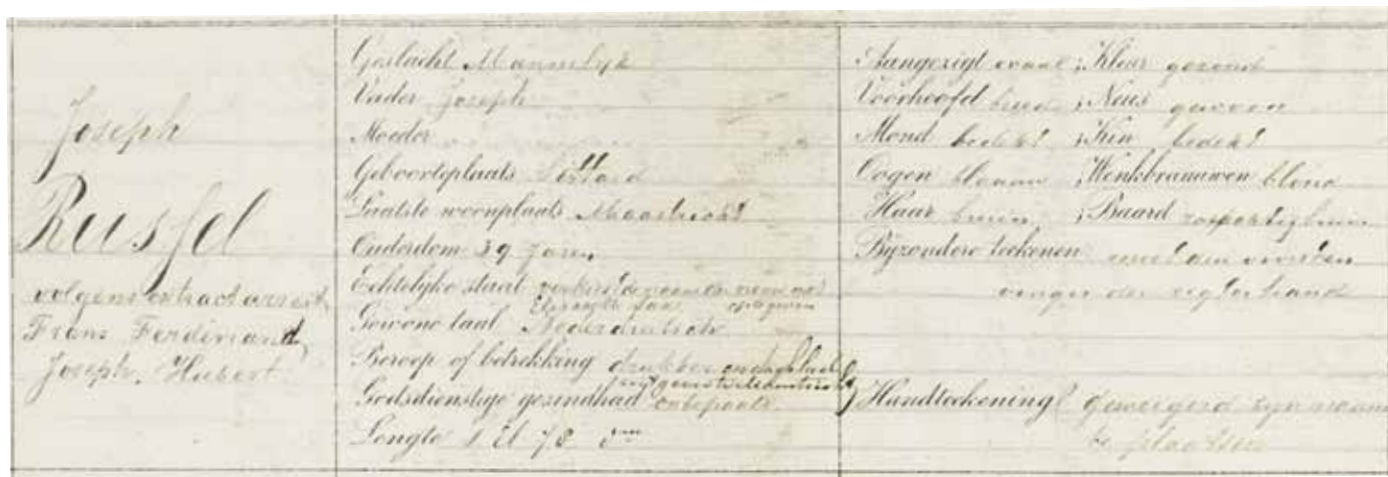 Joseph
Russel
volgens extract arrest
Frans Ferdinand,
Joseph. Hubert.
Geslacht Mannelyk
Vader Joseph
Moeder
Geboorteplaats Sittard
Laatste woonplaats Maastricht
Ouderdom 39 Jaren
Echtelyke staat
Gewone taal Nederduitsch
Beroep of betrekking drukker
Godsdienstige gezindheid onbepaald
Lengte 1 El 78
Aangezigt ovaal ; Kleur gezond
Voorhoofd ; Neus gewoon
Mond bedekt ; Kin bedekt
Oogen blaauw ; Wenkbraauwen blond
Haar bruin ; Baard
Byzondere teekenen
vinger der regterhand
Handteekening geweigerd zyn naam
te plaatsen